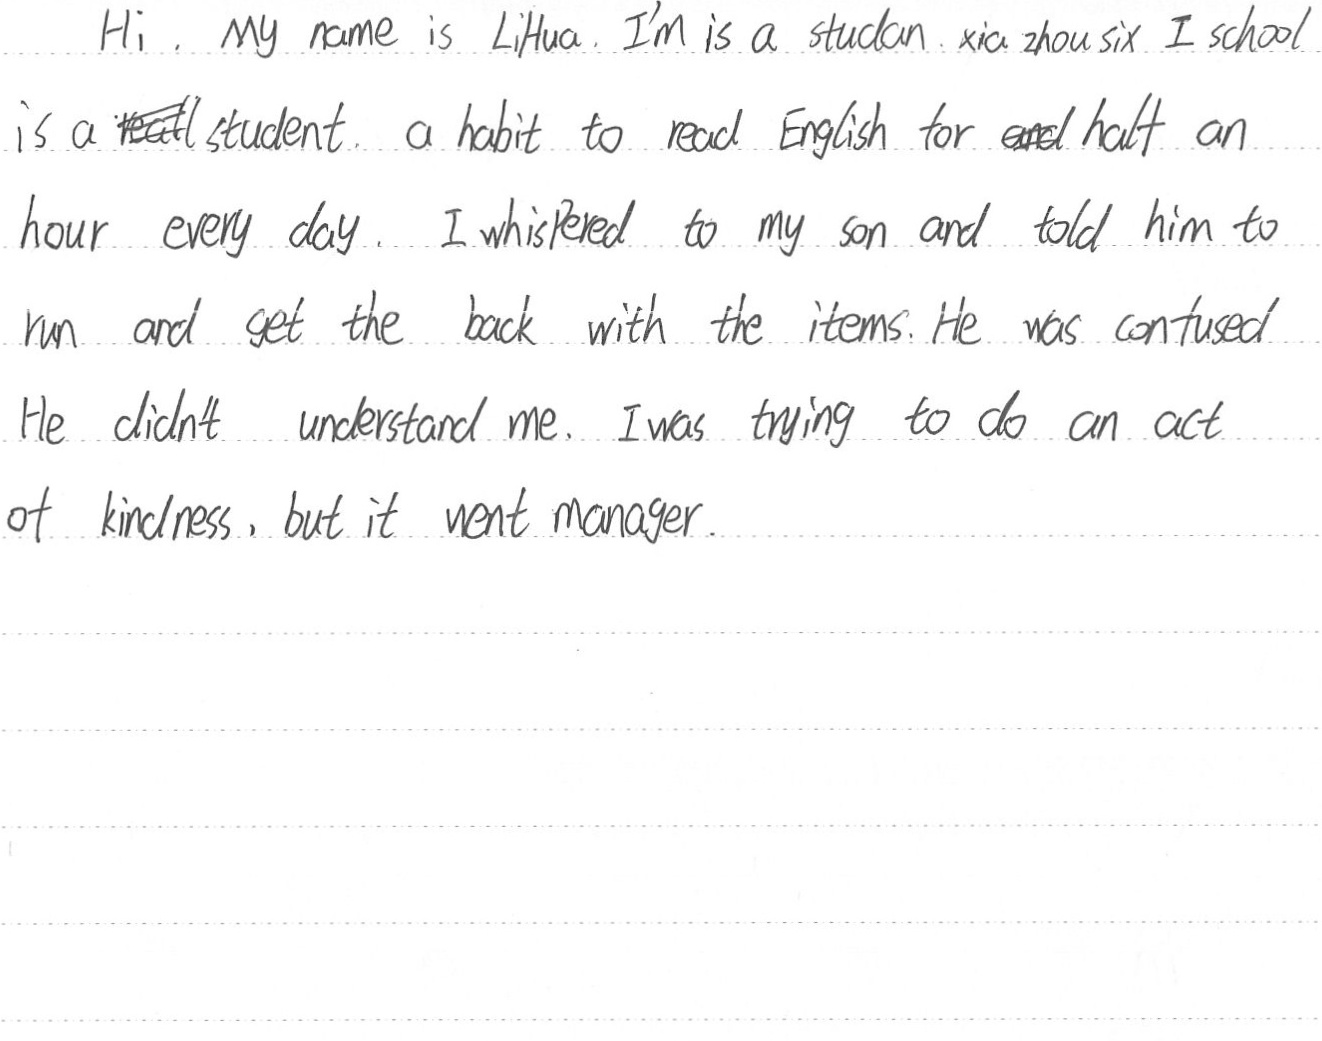 Hi. My name is LiHua. I'm is a studan. xia zhou six I school
is a student. a habit to read English for half an
hour every day. I whispered to my son and told him to
run and get the back with the items. He was confused
He didn't understand me. I was trying to do an act
of kindness, but it went manager.